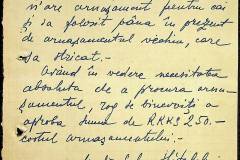 n'are armament pentru căi
și a folosit până în prezent
de armamentul vechiu, care
s'a stricat.-
Având în vedere necesitatea
absolută de a procura arma-
mentul, rog să binevoiți a
aproba suma de RKKS 250.-
costul armamentului.-